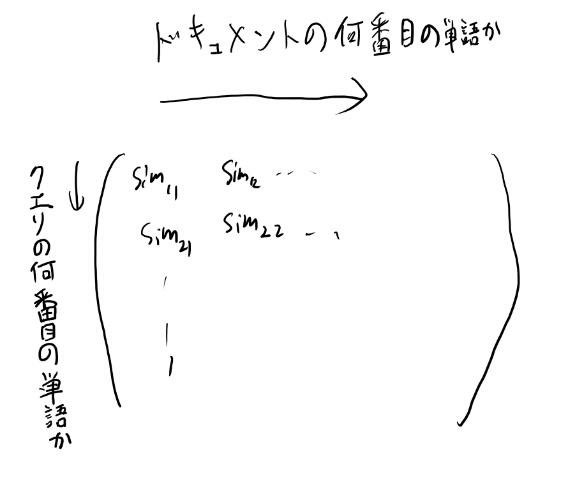 ドキュメントの何番目の単語か
クエリの何番目の単語か
Sim11 Sim12 ...
Sim21 Sim22 ...